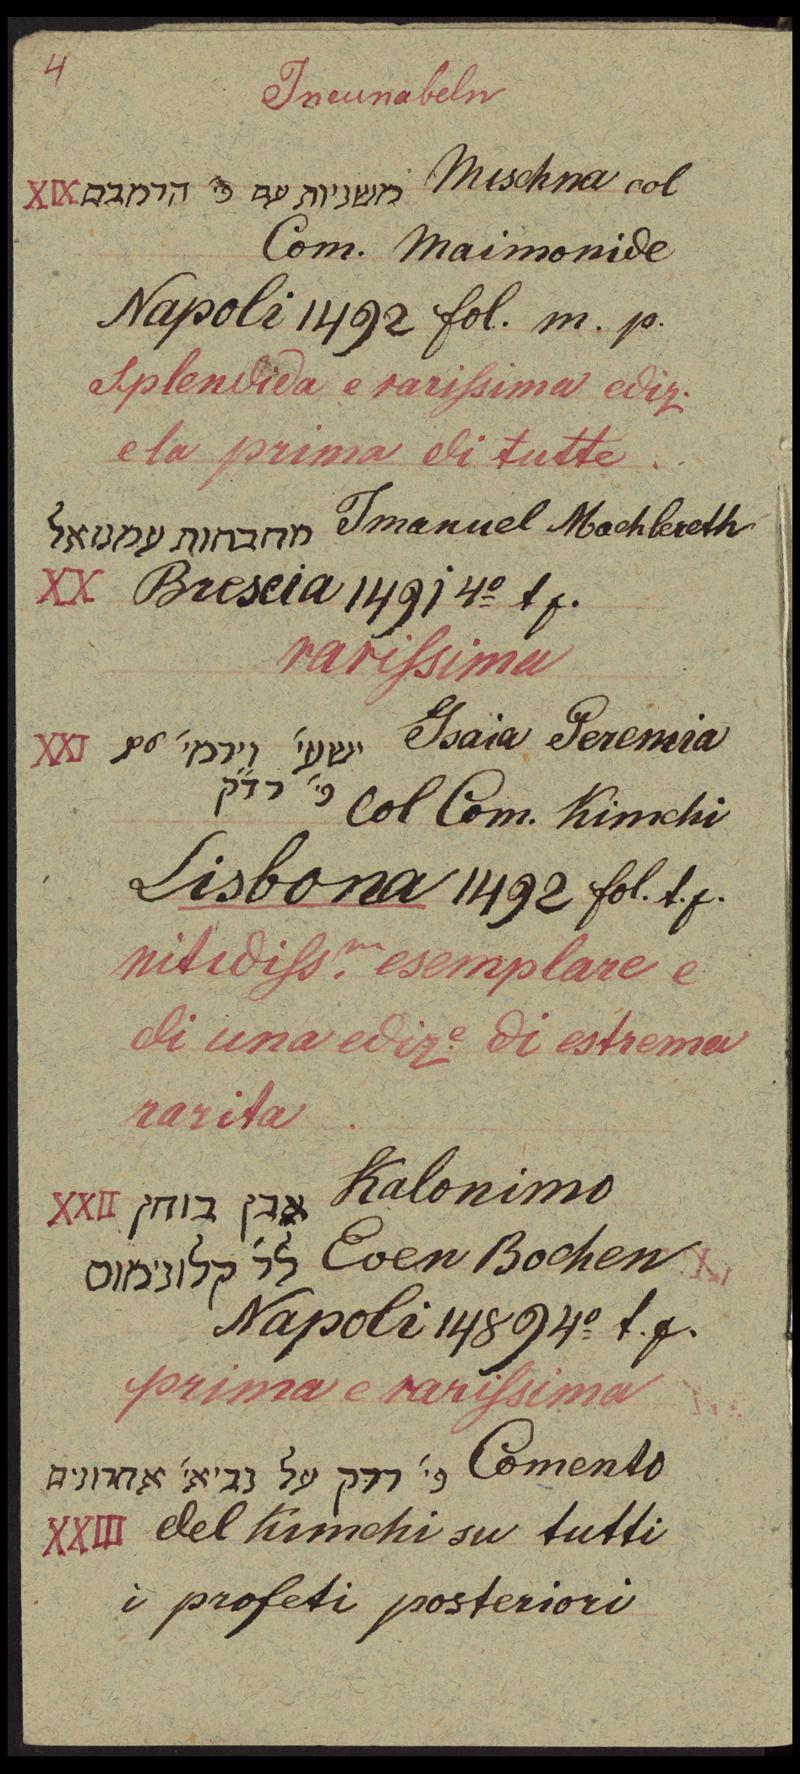 4
Incunabeln
XIX משניות עם פ׳ הרמבם Mischna col
Com. Maimonide
Napoli 1492 fol. m. p.
Splendida e rarissima ediz.
e la prima di tutte .
מחברות עמנואל Imanuel Machbereth
XX Brescia 1491 4º t p.
rarissima
XXI ישעי׳ וירמי׳ עם Isaia Jeremia
פ׳ רד״ק Col Com. Kimchi
Lisbona 1492 fol. t. p.
nitidiss.m esemplare e
di una ediz.e di estrema
rarita .
XXII אבן בוחן Kalonimo
לר׳ קלונימוס Even Bochen
Napoli 1489 4º t. p.
prima e rarissima
פ׳ רד״ק על נביאי׳ אחרונים Comento
XXIII del Kimchi su tutti
i profeti posteriori